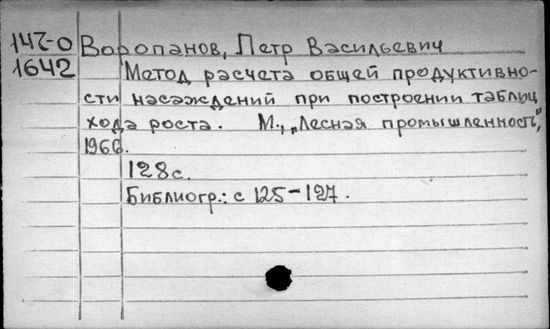 147-О Воропанов, Петр Васильевич
1642 Метод расчета общей продуктивно-
сти насаждений при построении таблиц
хода роста. М., „Лесная промышленность",
1966.
128с.
Библиогр.: с 125-127.